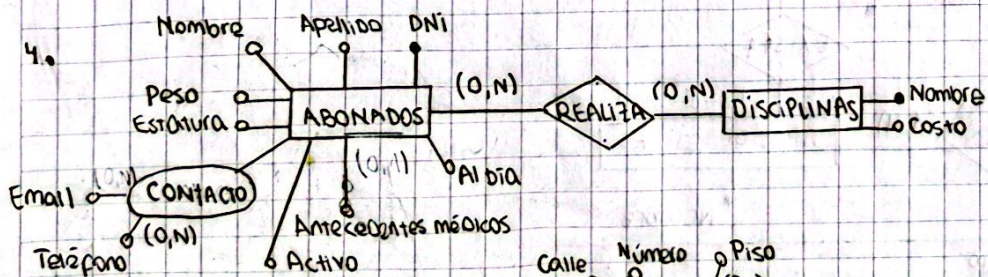 4.
Nombre
Apellido
DNI
Peso
Estatura
ABONADOS
(0,N)
REALIZA
(0,N)
DISCIPLINAS
Nombre
Costo
Email
(0,N)
CONTACTO
(0,1)
Al dia
Teléfono
(0,N)
Antecedentes médicos
Activo
Calle
Número
Piso